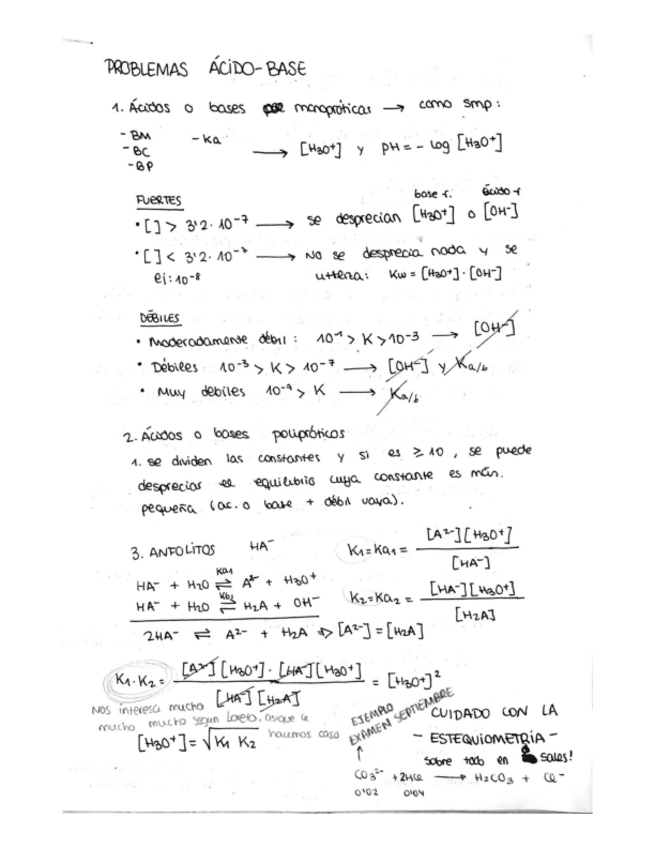 PROBLEMAS ÁCIDO-BASE
1. Ácidos o bases monopróticas → como smp:
- BM
- BC
- BP
- Ka
→ [H3O+] y pH = - log [H3O+]
FUERTES
base f. ácido f
• [ ] > 3'2·10-7 → se desprecian [H3O+] o [OH-]
• [ ] < 3'2·10-7 → No se desprecia nada y se
ej: 10-8 utiliza: Kw = [H3O+]·[OH-]
DÉBILES
• Moderadamente débil: 10-1 > K > 10-3 → [OH-]
• Débiles 10-3 > K > 10-7 → [OH-] y Ka/b
• Muy débiles 10-7 > K → Ka/b
2. Ácidos o bases polipróticos
1. se dividen las constantes y si es ≥ 10, se puede
despreciar el equilibrio cuya constante es más
pequeña (ac. o base + débil vaya).
3. ANFOLITOS HA-
K1=Ka1 = [A2-][H3O+] / [HA-]
HA- + H2O ⇌ A2- + H3O+
Ka1
HA- + H2O ⇌ H2A + OH-
Kb2
K2=Ka2 = [HA-][H3O+] / [H2A]
2HA- ⇌ A2- + H2A ⇒ [A2-] = [H2A]
K1·K2 = [A2-][H3O+]·[HA-][H3O+] / [HA-][H2A] = [H3O+]2
Nos interesa mucho
mucho mucho según Loreto, asique le
hacemos caso
[H3O+] = √K1 K2
EJEMPLO
EXAMEN SEPTIEMBRE
CUIDADO CON LA
- ESTEQUIOMETRÍA -
sobre todo en sales!
↑
CO32- + 2HCl → H2CO3 + Cl-
0'02 0'04